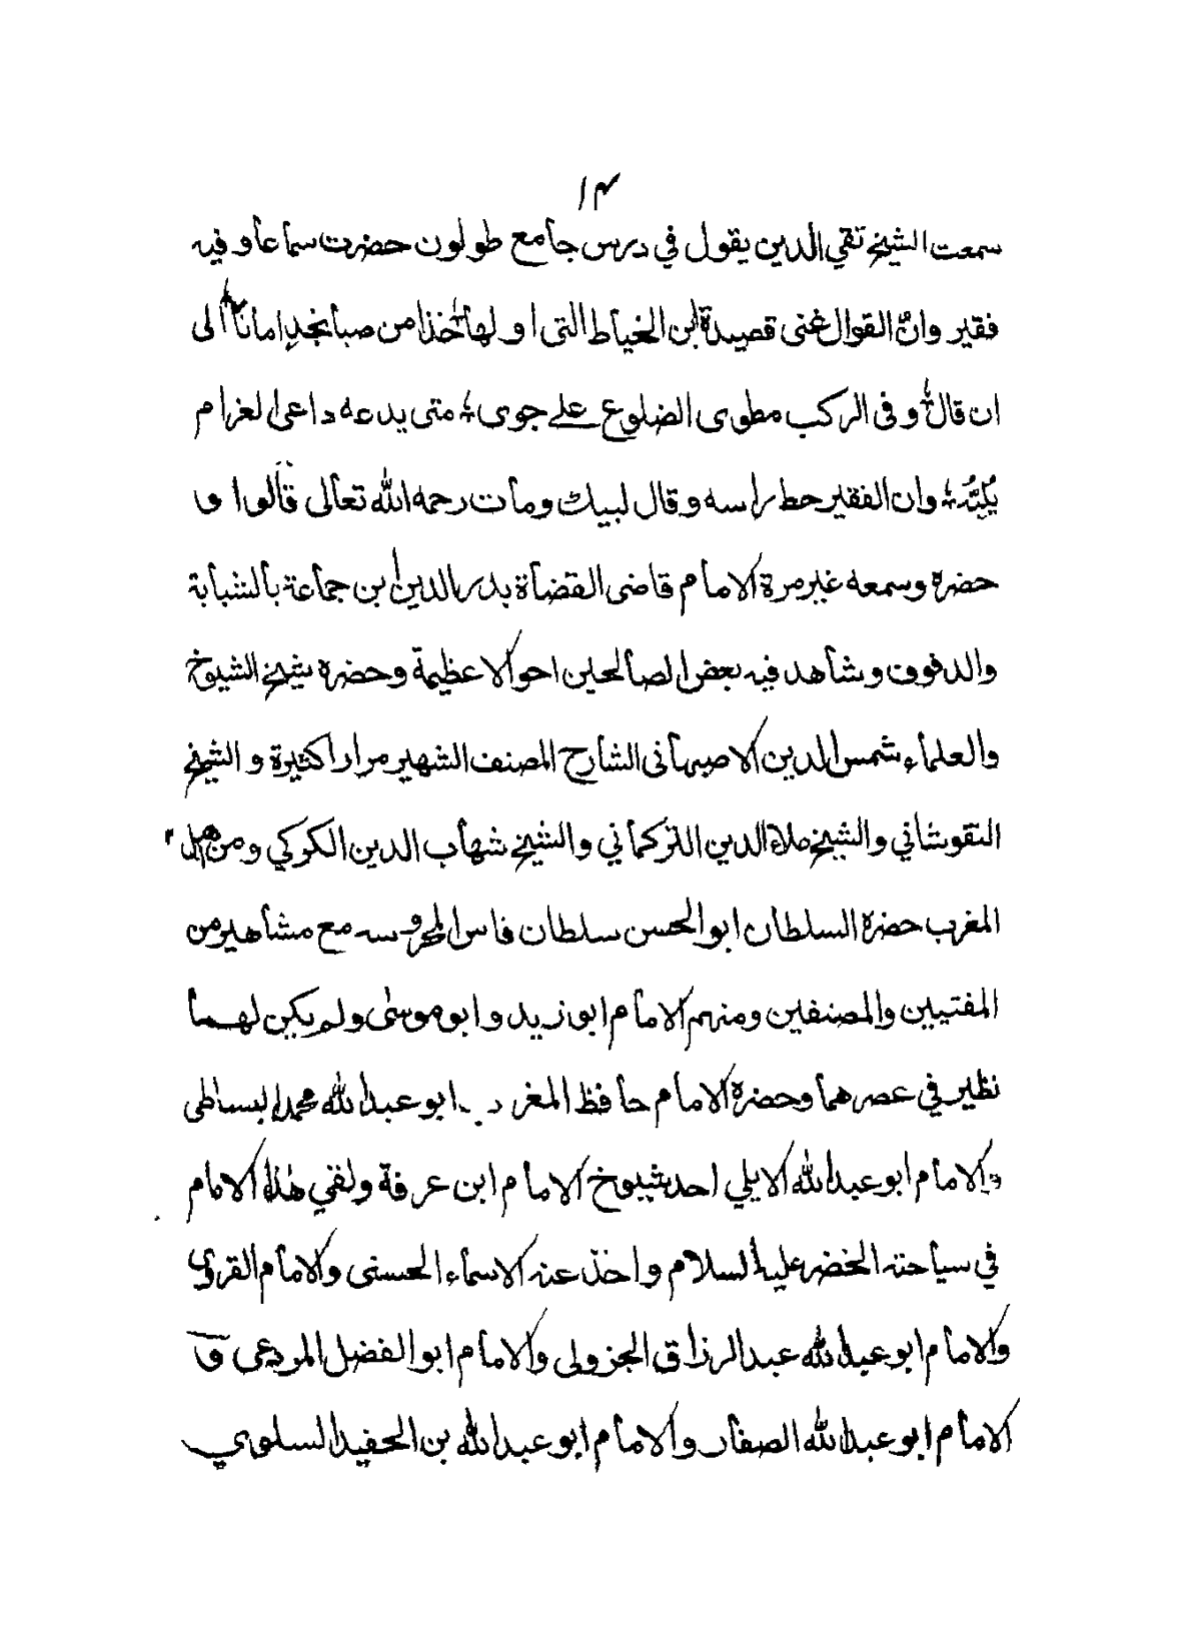 ١٣
سمعت الشيخ تقي الدين يقول في درس جامع طولون حضرت سماعا وفيه
فقير وان القوال غنى قصيدة ابن الخياط التى اولها خذا من صبا نجد امانا الى
ان قال وفى الركب مطوى الضلوع على جوى متى يدعه داعى الغرام
يلبه وان الفقير حط راسه وقال لبيك ومات رحمه الله تعالى قالوا و
حضره وسمعه غير مرة الامام قاضى القضاة بدر الدين ابن جماعة بالشبابة
والدفوف وشاهد فيه بعض الصالحين احوالا عظيمة وحضره شيخ الشيوخ
والعلماء شمس الدين الاصبهانى الشارح المصنف الشهير مرارا كثيرة والشيخ
النقوشاني والشيخ علاء الدين التركماني والشيخ شهاب الدين الكوكي ومن اهل
المغرب حضرة السلطان ابو الحسن سلطان فاس المحروسه مع مشاهير من
المفتيين والمصنفين ومنهم الامام ابو زيد وابو موسى ولم يكن لهما
نظير في عصرهما وحضره الامام حافظ المغرب ابو عبد الله محمد البساطى
والامام ابو عبد الله الايلي احد شيوخ الامام ابن عرفة ولقي هذا الامام
في سياحته الخضر عليه السلام واخذ عنه الاسماء الحسنى والامام القروي
والامام ابو عبد الله عبد الرزاق الجزولى والامام ابو الفضل المردعى و
الامام ابو عبد الله الصفار والامام ابو عبد الله بن الحفيد السلوي